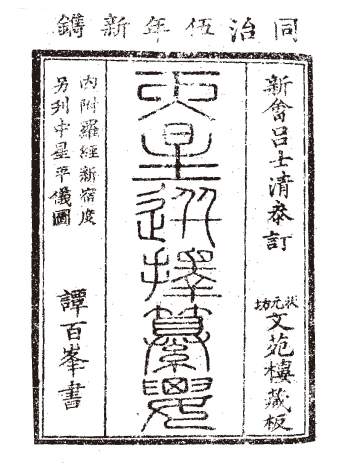 同治伍年新鐫
新會呂士清叅訂
狀元坊文苑樓藏板
天星選擇纂要
內附羅經新宿度
另列中星平儀圖
譚百峯書